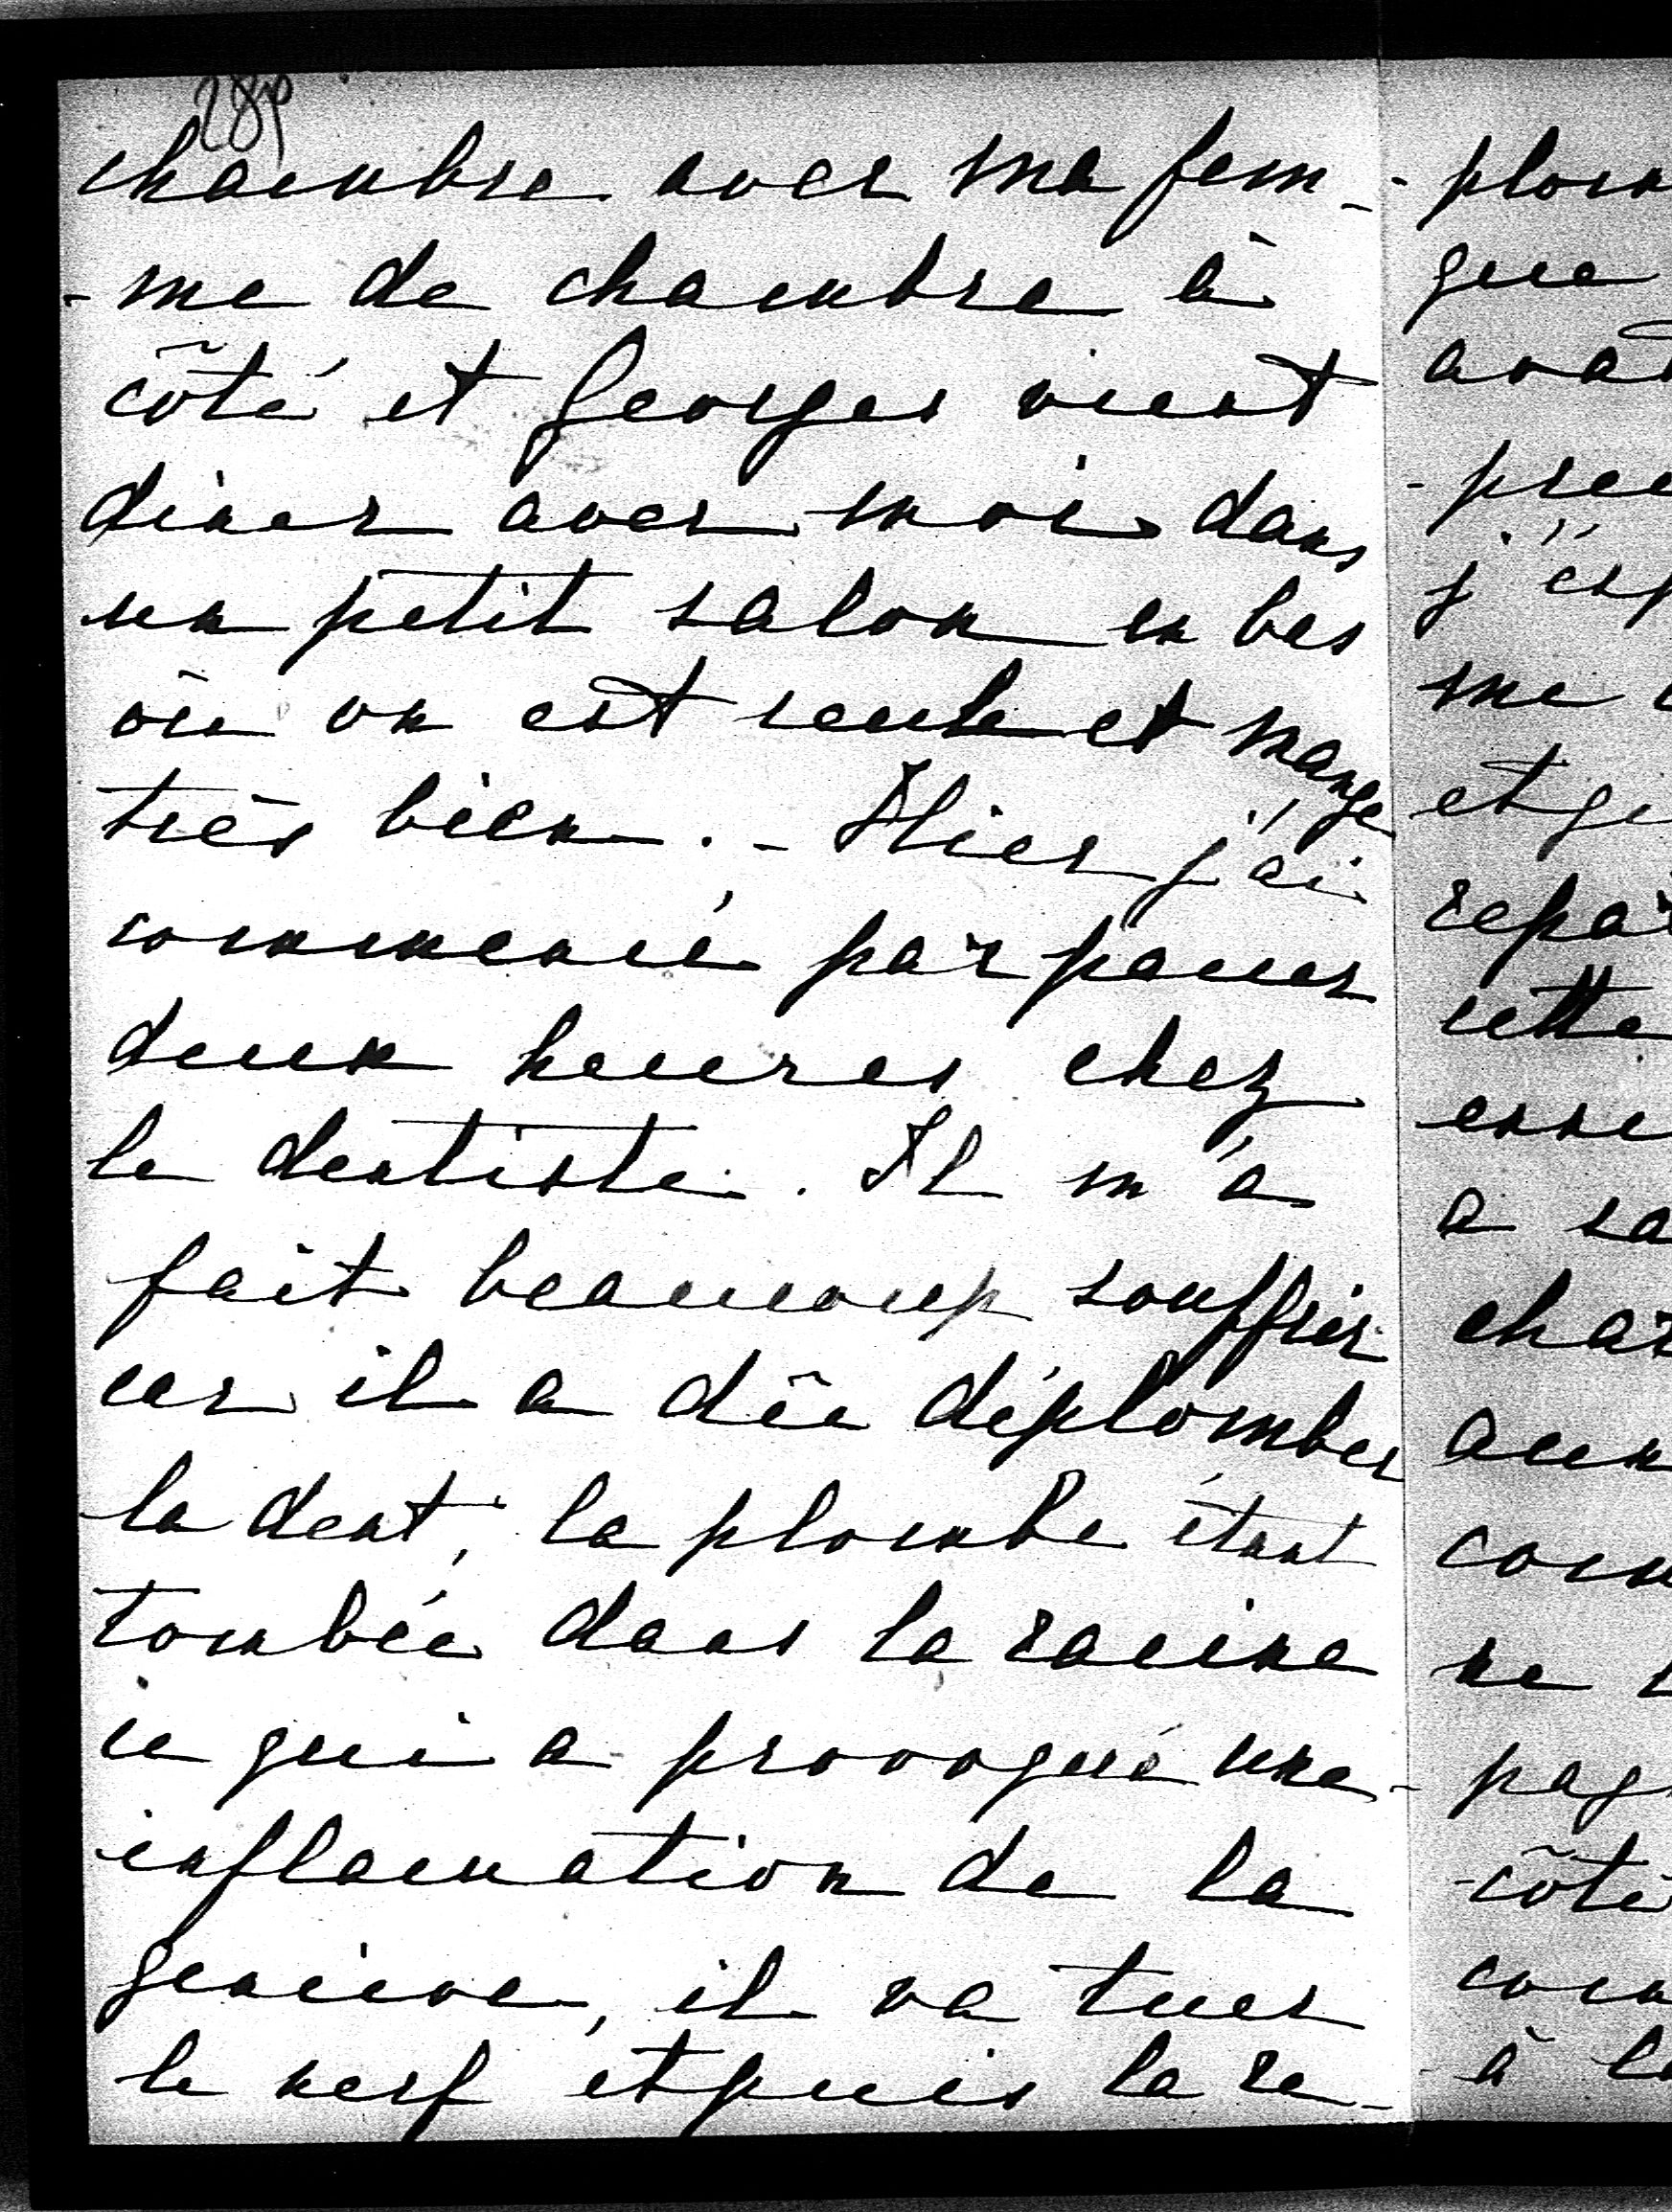 28p
chambre avec ma fem-
-me de chambre à
côté et Georges vient
diner avec moi dans
un petit salon en bas
où on est seule et mange
très bien. - Hier j'ai
commencé par passer
deux heures chez
le dentiste. Il m'a
fait beaucoup souffrir
car il a dû déplomber
la dent, la plombe étant
tombée dans la racine
ce qui a provoqué une
inflamation de la
gencive, il va tuer
le nerf et puis la re-
-plom
que
avai
-pree
j'esp
me
et ge
repar
cette
enne
a sa
char
aux
com
ne
pag
côté
com
à la